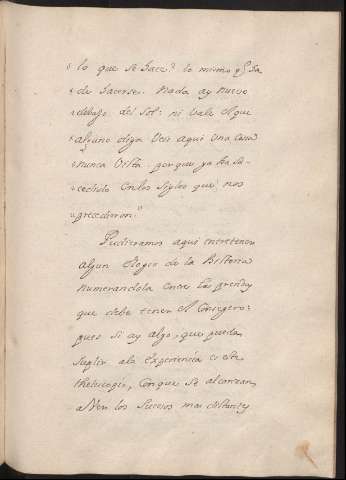 lo que se hace? lo mismo q̃ ha
de hacerse. Nada ay nuevo
debajo del sol: ni vale el que
alguno diga Veis aqui una cosa
nunca Vista. porque ya ha su-
cedido en los siglos que nos
precedieron."
Pudieramos aqui entretener
algun Elogio de la Historia
numerandola entre las prendas
que debe tener el Consegero:
pues si ay algo, que pueda
suplir a la experiencia es este
, con que se alcanzan
a Ver los Sucesos mas distantes